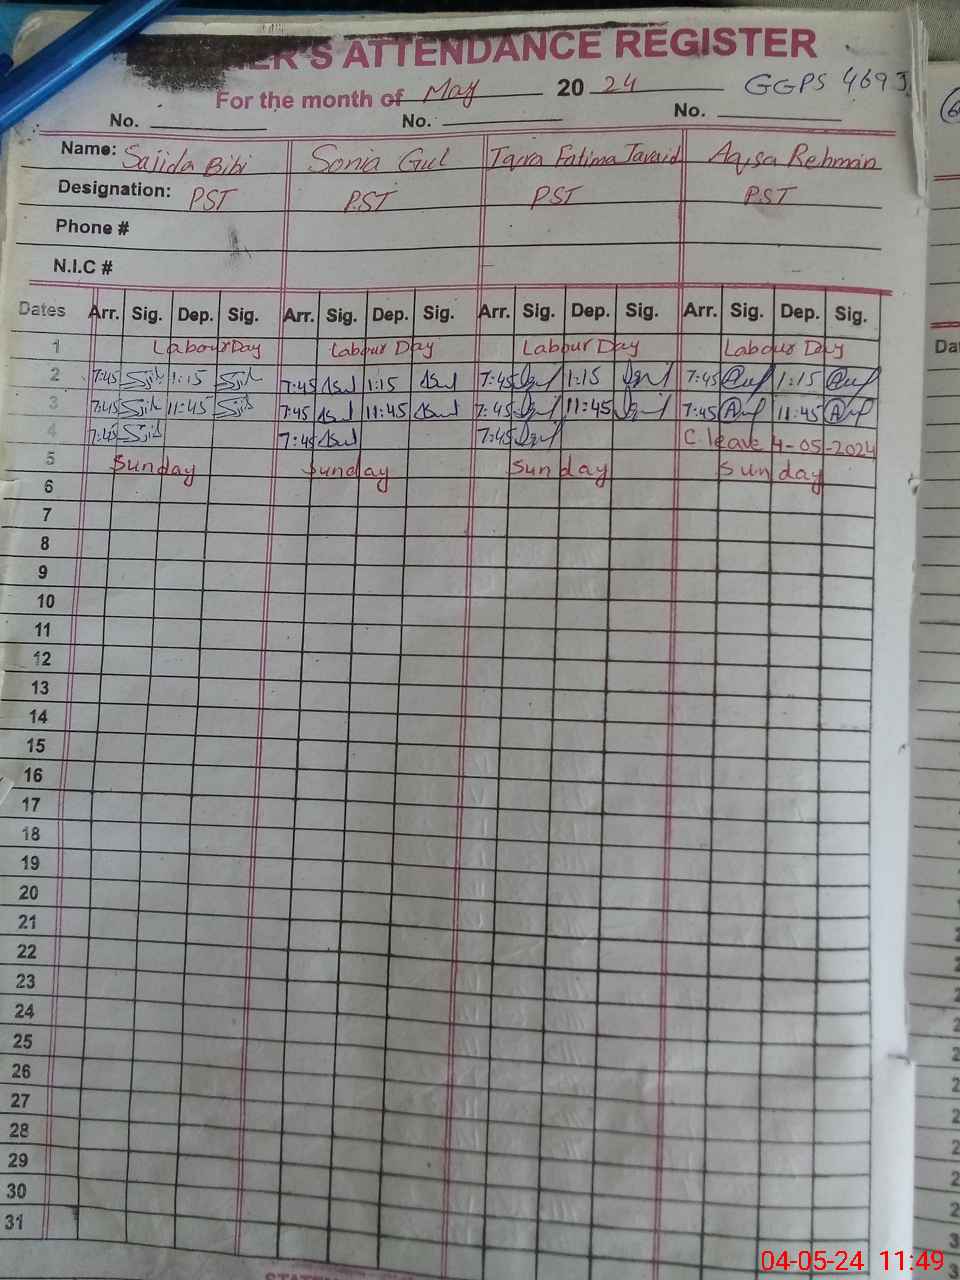 ER'S ATTENDANCE REGISTER
For the month of May 2024 GGPS 469J
No. No. No.
Name: Sajida Bibi Sonia Gul Iqra Fatima Javaid Aqsa Rehman
Designation: PST PST PST PST
Phone #
N.I.C #
Dates Arr. Sig. Dep. Sig. Arr. Sig. Dep. Sig. Arr. Sig. Dep. Sig. Arr. Sig. Dep. Sig.
1 Labour Day Labour Day Labour Day Labour Day
2 7:45 1:15 7:45 1:15 7:45 1:15 7:45 1:15
3 7:45 11:45 7:45 11:45 7:45 11:45 7:45 11:45
4 7:45 7:45 7:45 C. leave 4-05-2024
5 Sunday Sunday Sunday Sunday
6
7
8
9
10
11
12
13
14
15
16
17
18
19
20
21
22
23
24
25
26
27
28
29
30
31
04-05-24 11:49